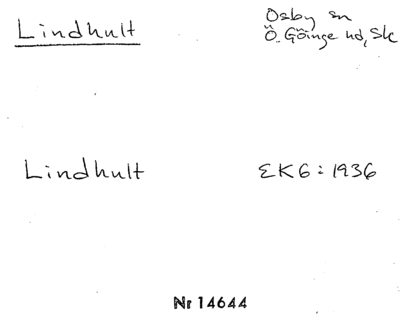 Lindhult
Osby sn
Ö. Göinge hd, Sk
Lindhult
EK6:1936
Nr 14644